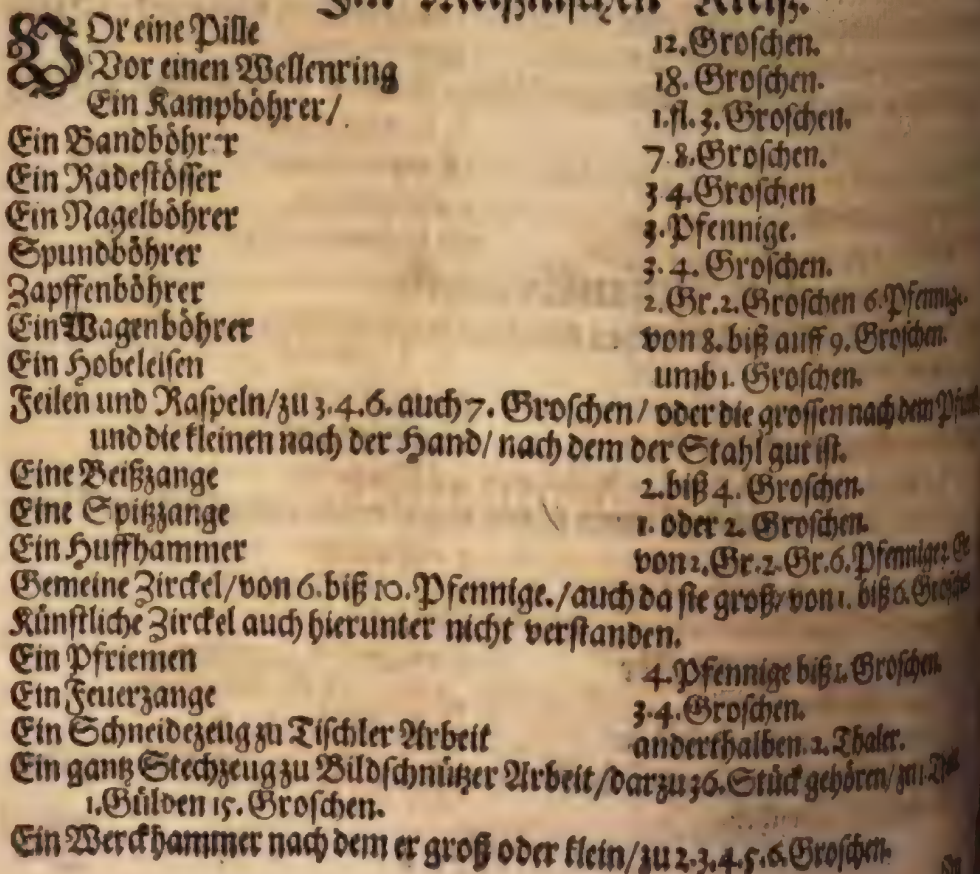 Im Meißnischen Kreiß.
VOr eine Pille 12. Groschen.
Vor einen Wellenring 18. Groschen.
Ein Kampböhrer/ 1. fl. 3. Groschen.
Ein Bandböhrer 7 8. Groschen.
Ein Radestösser 3 4. Groschen
Ein Nagelböhrer 3. Pfennige.
Spundböhrer 3. 4. Groschen.
Zapffenböhrer 2. Gr. 2. Groschen 6. Pfennig.
Ein Wagenböhrer von 8. biß auff 9. Groschen.
Ein Hobeleisen umb 1. Groschen.
Feilen und Raspeln/ zu 3. 4. 6. auch 7. Groschen/ oder die grossen nach dem
und die kleinen nach der Hand/ nach dem der Stahl gut ist.
Eine Beißzange 2. biß 4. Groschen.
Eine Spitzzange 1. oder 2. Groschen.
Ein Huffhammer von 2. Gr. 2. Gr. 6. Pfennige
Gemeine Zirckel/ von 6. biß 10. Pfennige./ auch da sie groß/ von 1. biß 6.
Künstliche Zirckel auch hierunter nicht verstanden.
Ein Pfriemen 4. Pfennige biß 1. Groschen.
Ein Feuerzange 3. 4. Groschen.
Ein Schneidezeug zu Tischler Arbeit anderthalben. 2. Thaler.
Ein gantz Stechzeug zu Bildschnützer Arbeit/ darzu 36. Stück gehören/ zu 1.
1. Gülden 15. Groschen.
Ein Werckhammer nach dem er groß oder klein/ zu 2. 3. 4. 5. 6. Groschen.